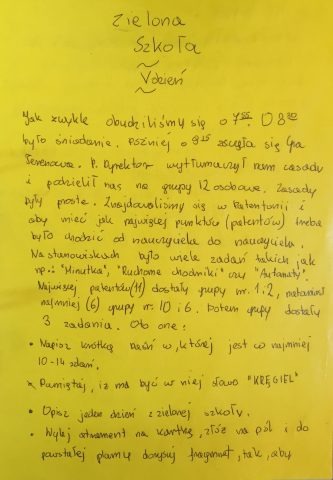 Zielona
Szkoła
V dzień
Jak zwykle obudziliśmy się o 7:55. O 8:30
było śniadanie. Później o 9:15 zaczęła się Gra
Terenowa. P. Dyrektor wytłumaczył nam zasady
i podzielił nas na grupy 12 osobowe. Zasady
były proste. Znajdowaliśmy się w Patentonii i
aby mieć jak najwięcej punktów (patentów) trzeba
było chodzić od nauczyciela do nauczyciela.
Na stanowiskach było wiele zadań takich jak
np.: "Minutka", "Ruchome chodniki" czy "Autamaty".
Najwięcej patentów (11) dostały grupy nr. 1 i 2, natomiast
najmniej (6) grupy nr. 10 i 6. Potem grupy dostały
3 zadania. Oto one:
• Napisz krótką baśń w, której jest co najmniej
10-14 zdań.
Pamiętaj, iż ma być w niej słowo "KRĘGIEL"
• Opisz jeden dzień z zielonej szkoły.
• Wylej atrament na kartkę, złóż na pół i do
powstałej plamy dorysuj fragment, tak, aby